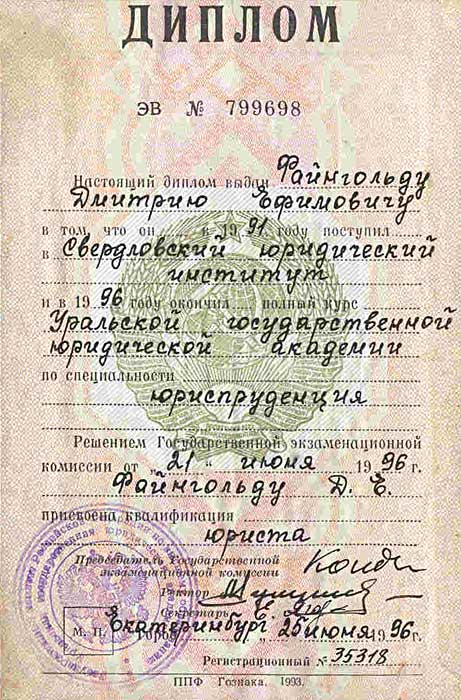 ДИПЛОМ
ЭВ № 799698
Настоящий диплом выдан Файнгольду
Дмитрию Ефимовичу
в том, что он в 1991 году поступил
в Свердловский юридический
институт
и в 1996 году окончил полный курс
Уральской государственной
юридической академии
по специальности
юриспруденция
Решением Государственной экзаменационной
комиссии от „21“ июня 1996 г.
Файнгольду Д. Е.
присвоена квалификация
юриста
Председатель Государственной
экзаменационной комиссии
Ректор
Секретарь
М. П. Город Екатеринбург, 25 июня 1996 г.
Регистрационный № 35318
ППФ Гознака. 1993.